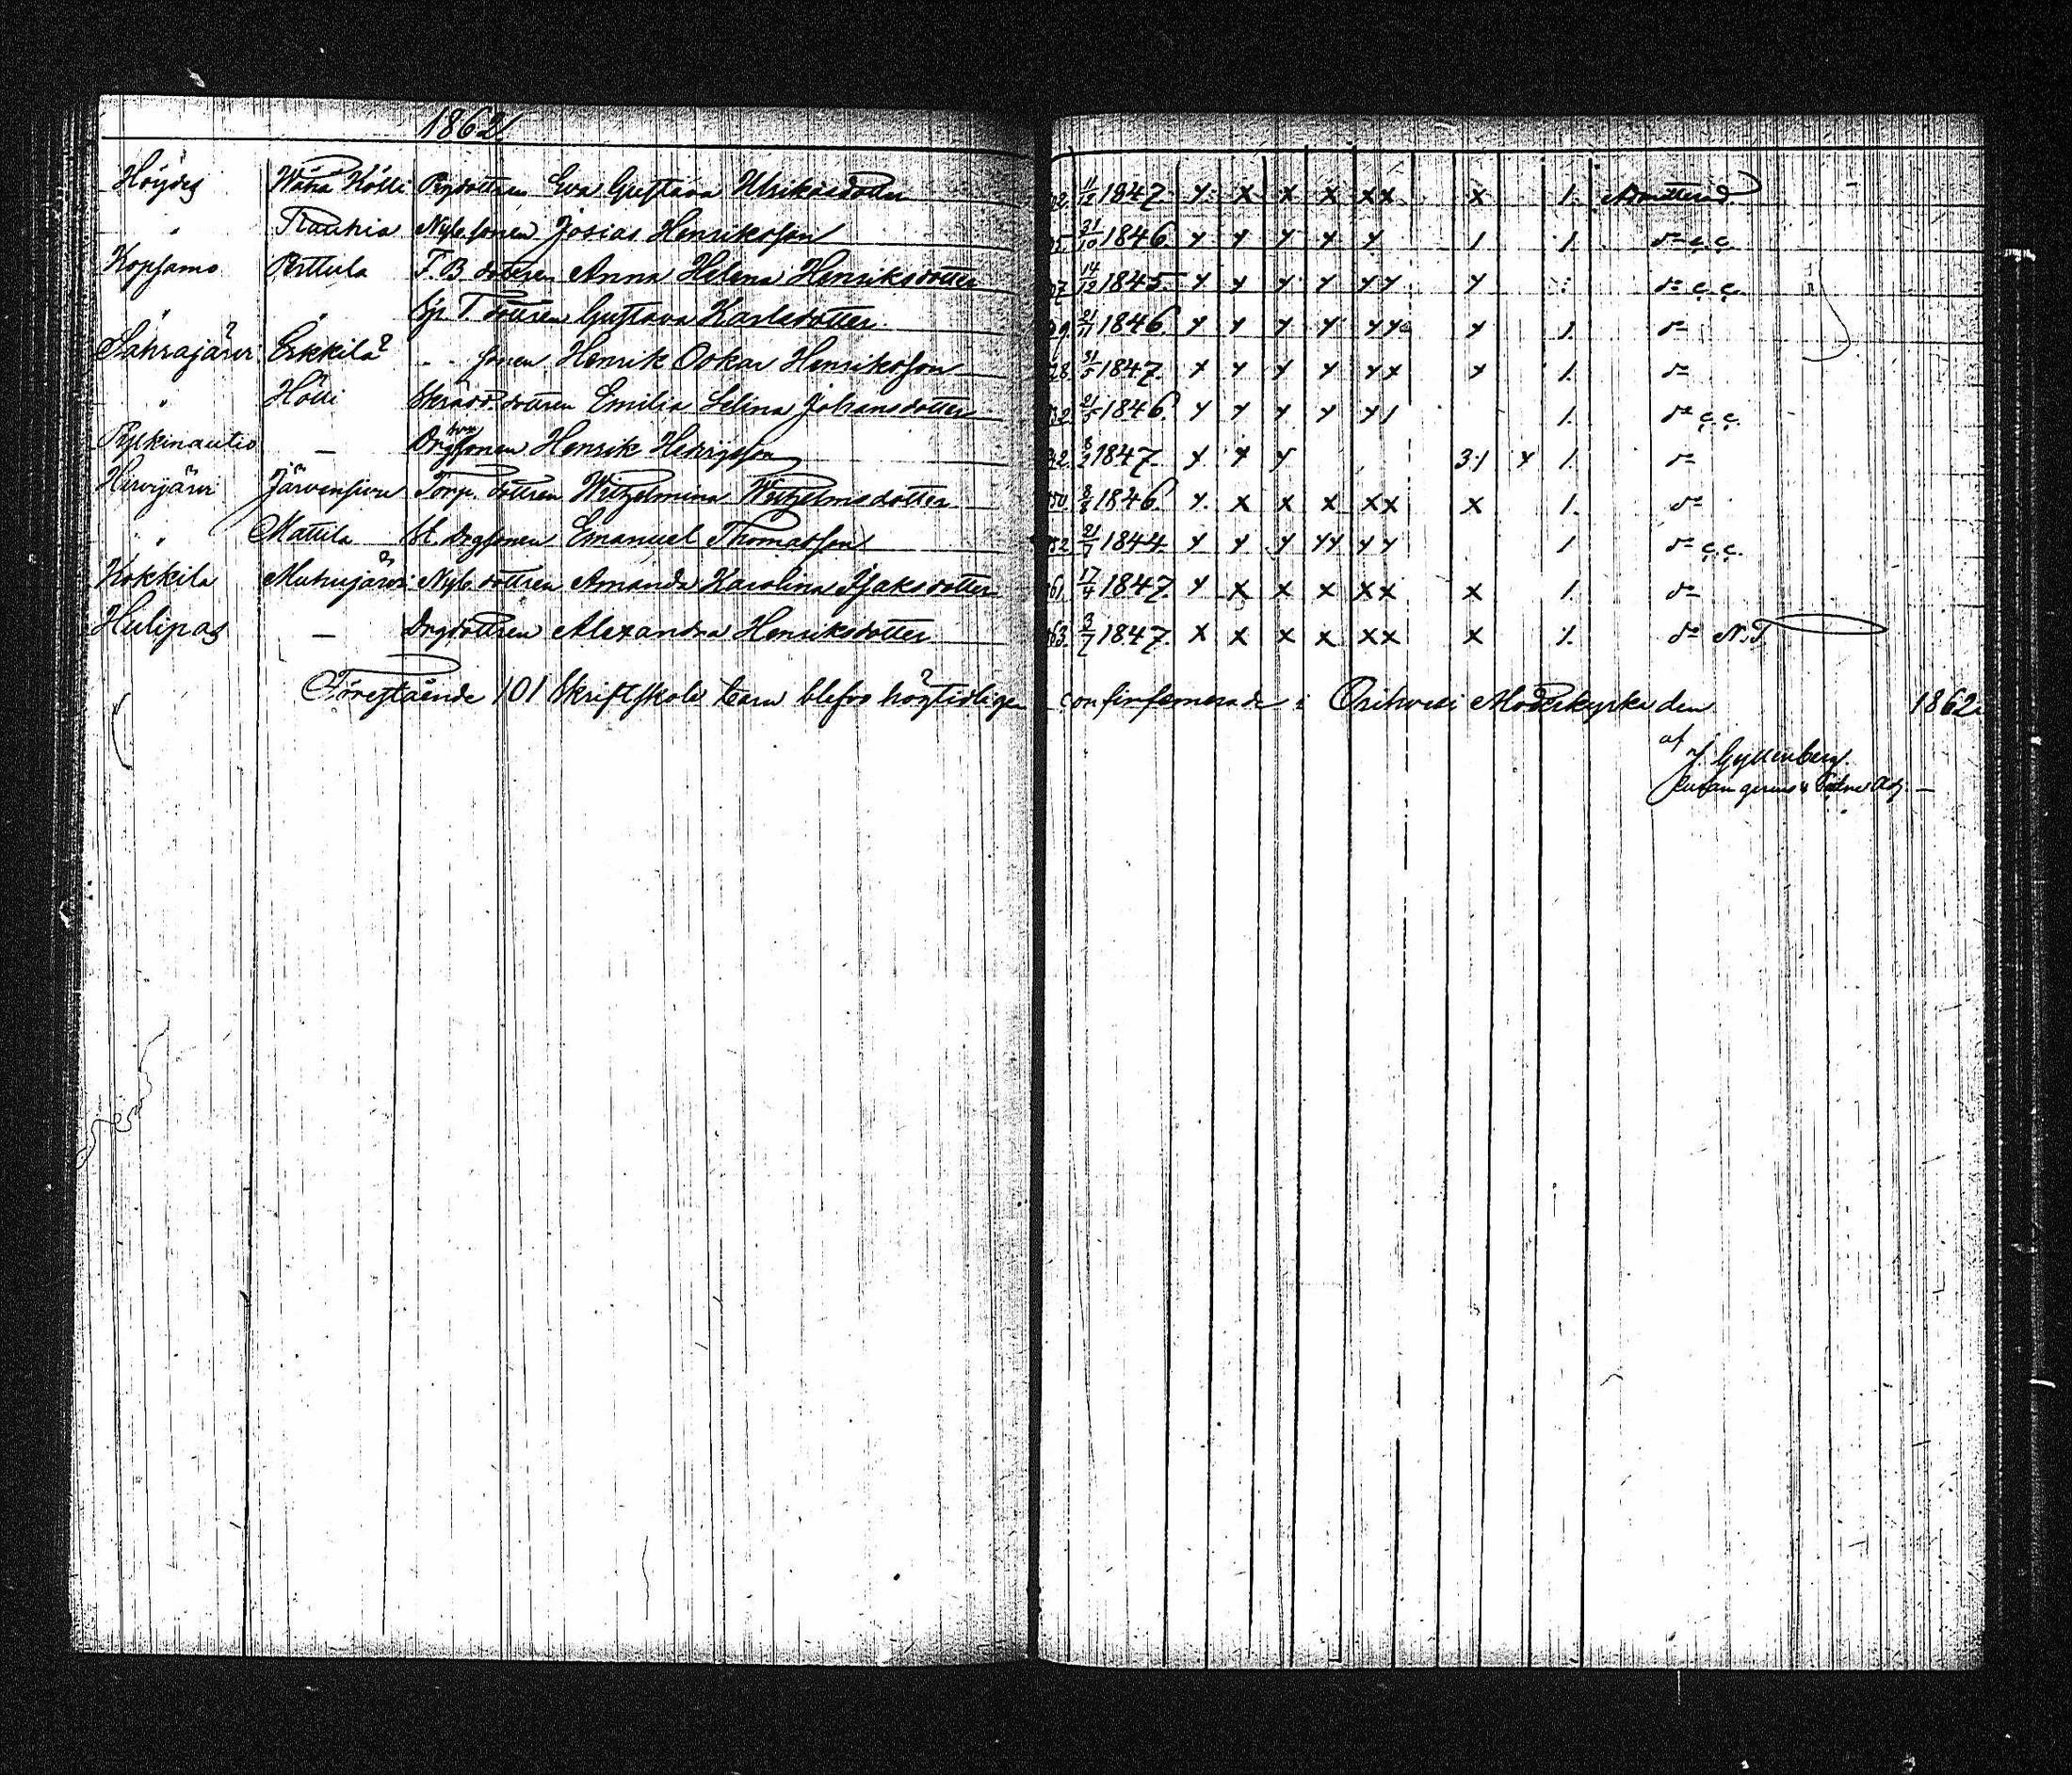 1862
Höydes Wähä Kölli Pigdottren Eva Gustava Ulrikasdotter 02. 11/12 1847. y. x x x xx x 1. Admitterad
" Rauhia Nybs. sonen Josias Henriksson 31/10 1846. y y y y y 1 1. do c. c.
Kopsamo Perttula T. B. dottren Anna Helena Henriksdotter 07. 14/12 1845. y y y y yy y do c. c.
" " Sjr T. dottren Gustava Karlsdotter 21/11 1846. y y y y yy y 1. do
Sahrajärvi Erkkilä " " sonen Henrik Oskar Henriksson 28. 31/5 1847. x y y y yx y 1. do
" Hölli Skrädd. dottren Emilia Selina Johansdotter 32. 21/5 1846. y y y y y1 1. do c. c.
Pylkinautio — Drgsonen Henrik Henrigsson 1847. y y y 31 y 1. do
Hirvijärvi Järvensivu Torp. dottren Wilhelmina Wilhelmsdotter 50. 1846. y. x x x xx x 1. do
" Mattila Drgsonen Emanuel Thomasson 52. 21/7 1844. y y y yy yy 1 do c. c.
Kokkila Muhujärvi Nybs. dottren Amanda Karolina Isaksdotter 61. 17/4 1847. y x x x xx x 1. do
Hulipas — Drgdottren Alexandra Henriksdotter 63. 3/7 1847. x x x x xx x 1. do N. T.
Förestående 101 Skriftskole barn blefvo högtidligen confirmerade i Orihvesi Moderkyrka den 1862.
af
J. Gyllenberg.